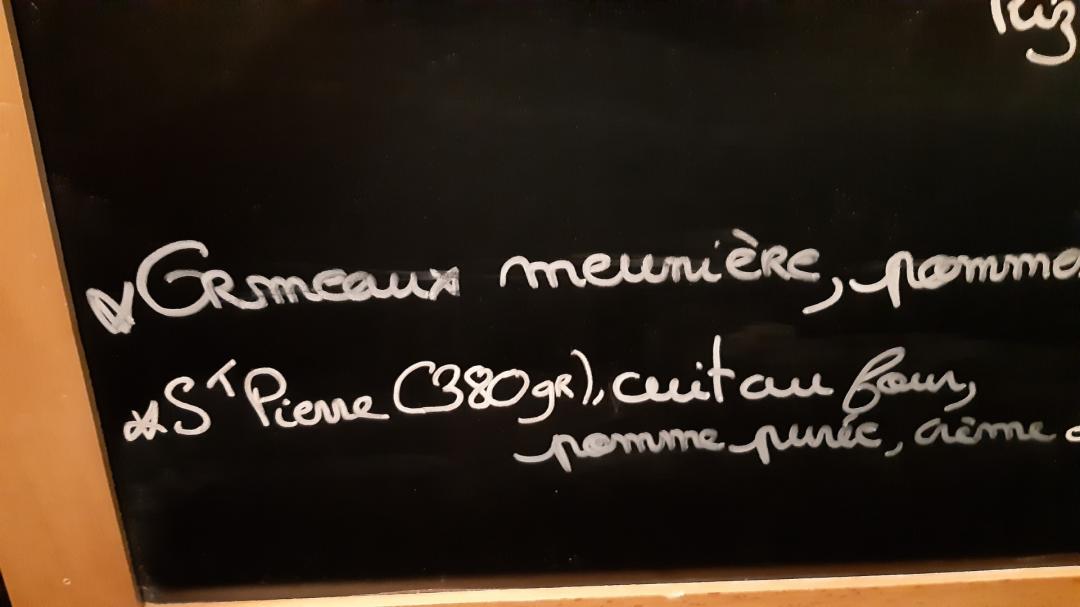 Riz
* Ormeaux meunière, pomme
* S^T Pierre (380gr), cuit au four,
pomme purée, crème